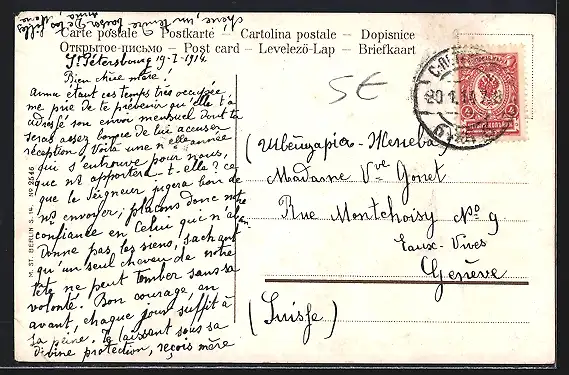 chérie, un tendre baiser De tes filles
Anna, Hélène
Carte postale – Postkarte – Cartolina postale – Dopisnice
Открытое письмо – Post card – Levelező-Lap – Briefkaart
St Pétersbourg 19-I-1914.
Bien chère mère!
Anna étant ces temps très occupée
me prie de te prévenir qu'elle t'a
adressé son envoi mensuel dont tu
seras assez bonne de lui accuser
réception. Voilà une nelle année
qui s'entrouve pour nous,
que ns apportera-t-elle? ce
que le Seigneur jugera bon de
ns envoyer; plaçons donc notre
confiance en Celui qui n'aban-
donne pas les siens, sachant
qu'un seul cheveu de notre
tête ne peut tomber sans sa
volonté. Bon courage, en
avant, chaque jour suffit à
sa peine. Te laissant sous sa
divine protection, reçois mère
M. ST. BERLIN S. 14. No 2546
5E
С-ПЕТ
20 1 14
(Швейцарія – Женева)
Madame Vve Gonet
Rue Montchoisy No 9
Eaux-Vives
Genève
(Suisse)